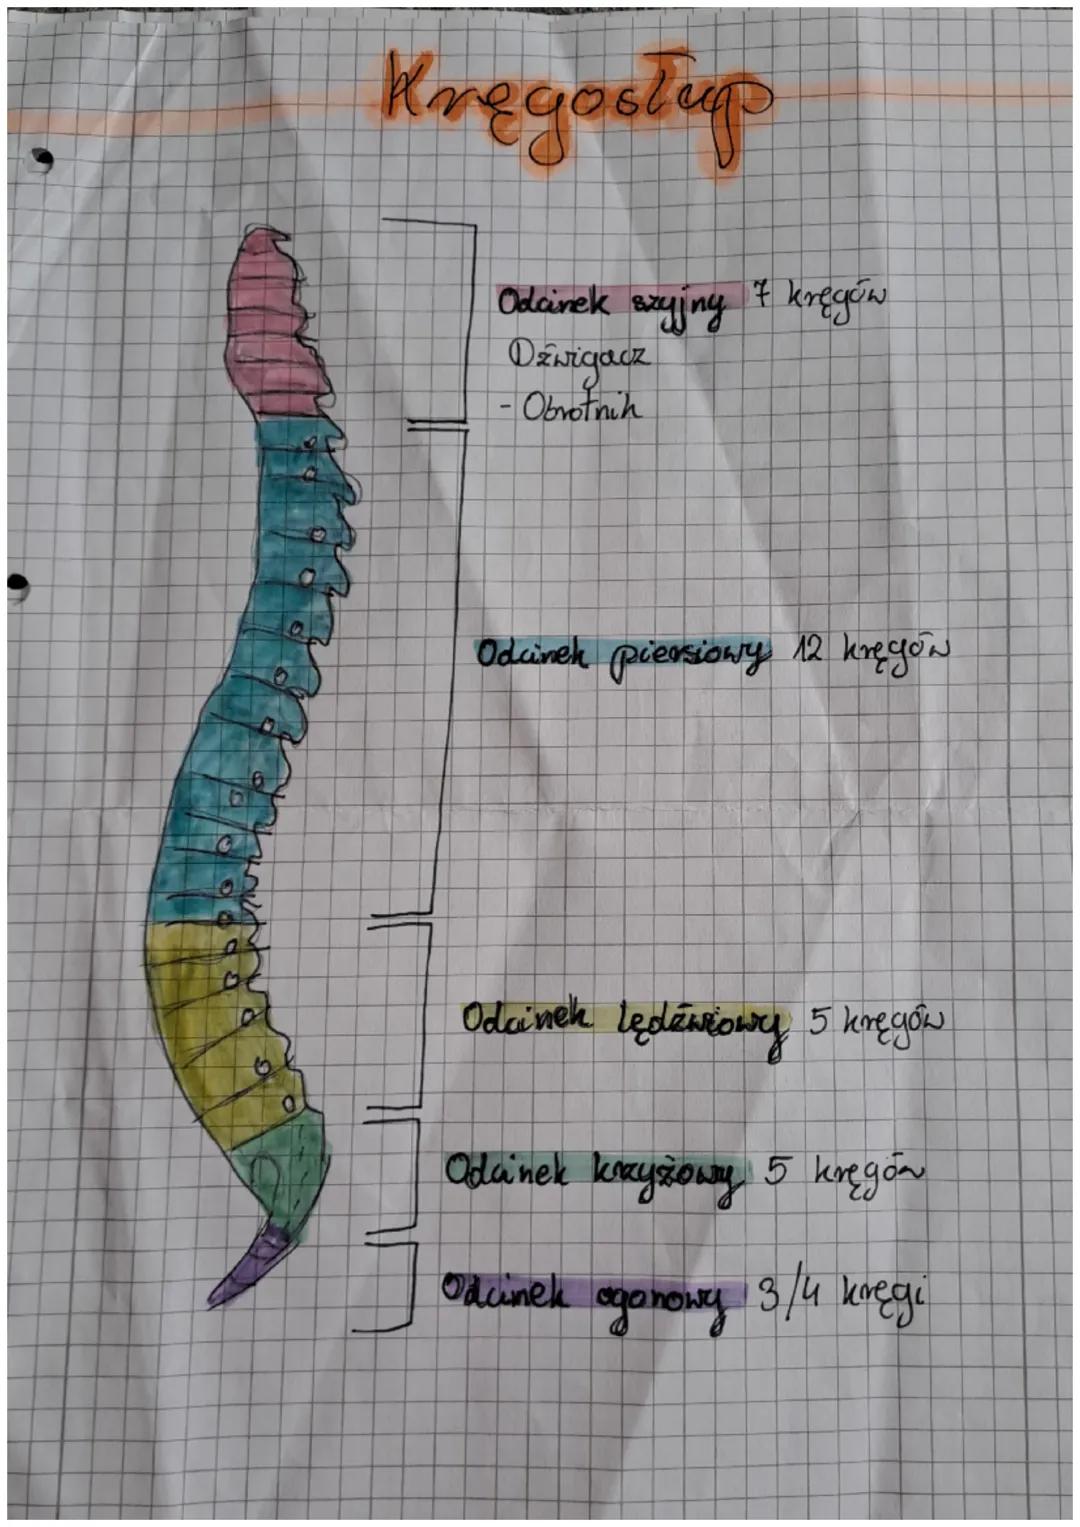 Kręgosłup
Odcinek szyjny 7 kręgów
Dźwigacz
- Obrotnik
Odcinek piersiowy 12 kręgów
Odcinek lędźwiowy 5 kręgów
Odcinek krzyżowy 5 kręgów
Odcinek ogonowy 3/4 kręgi